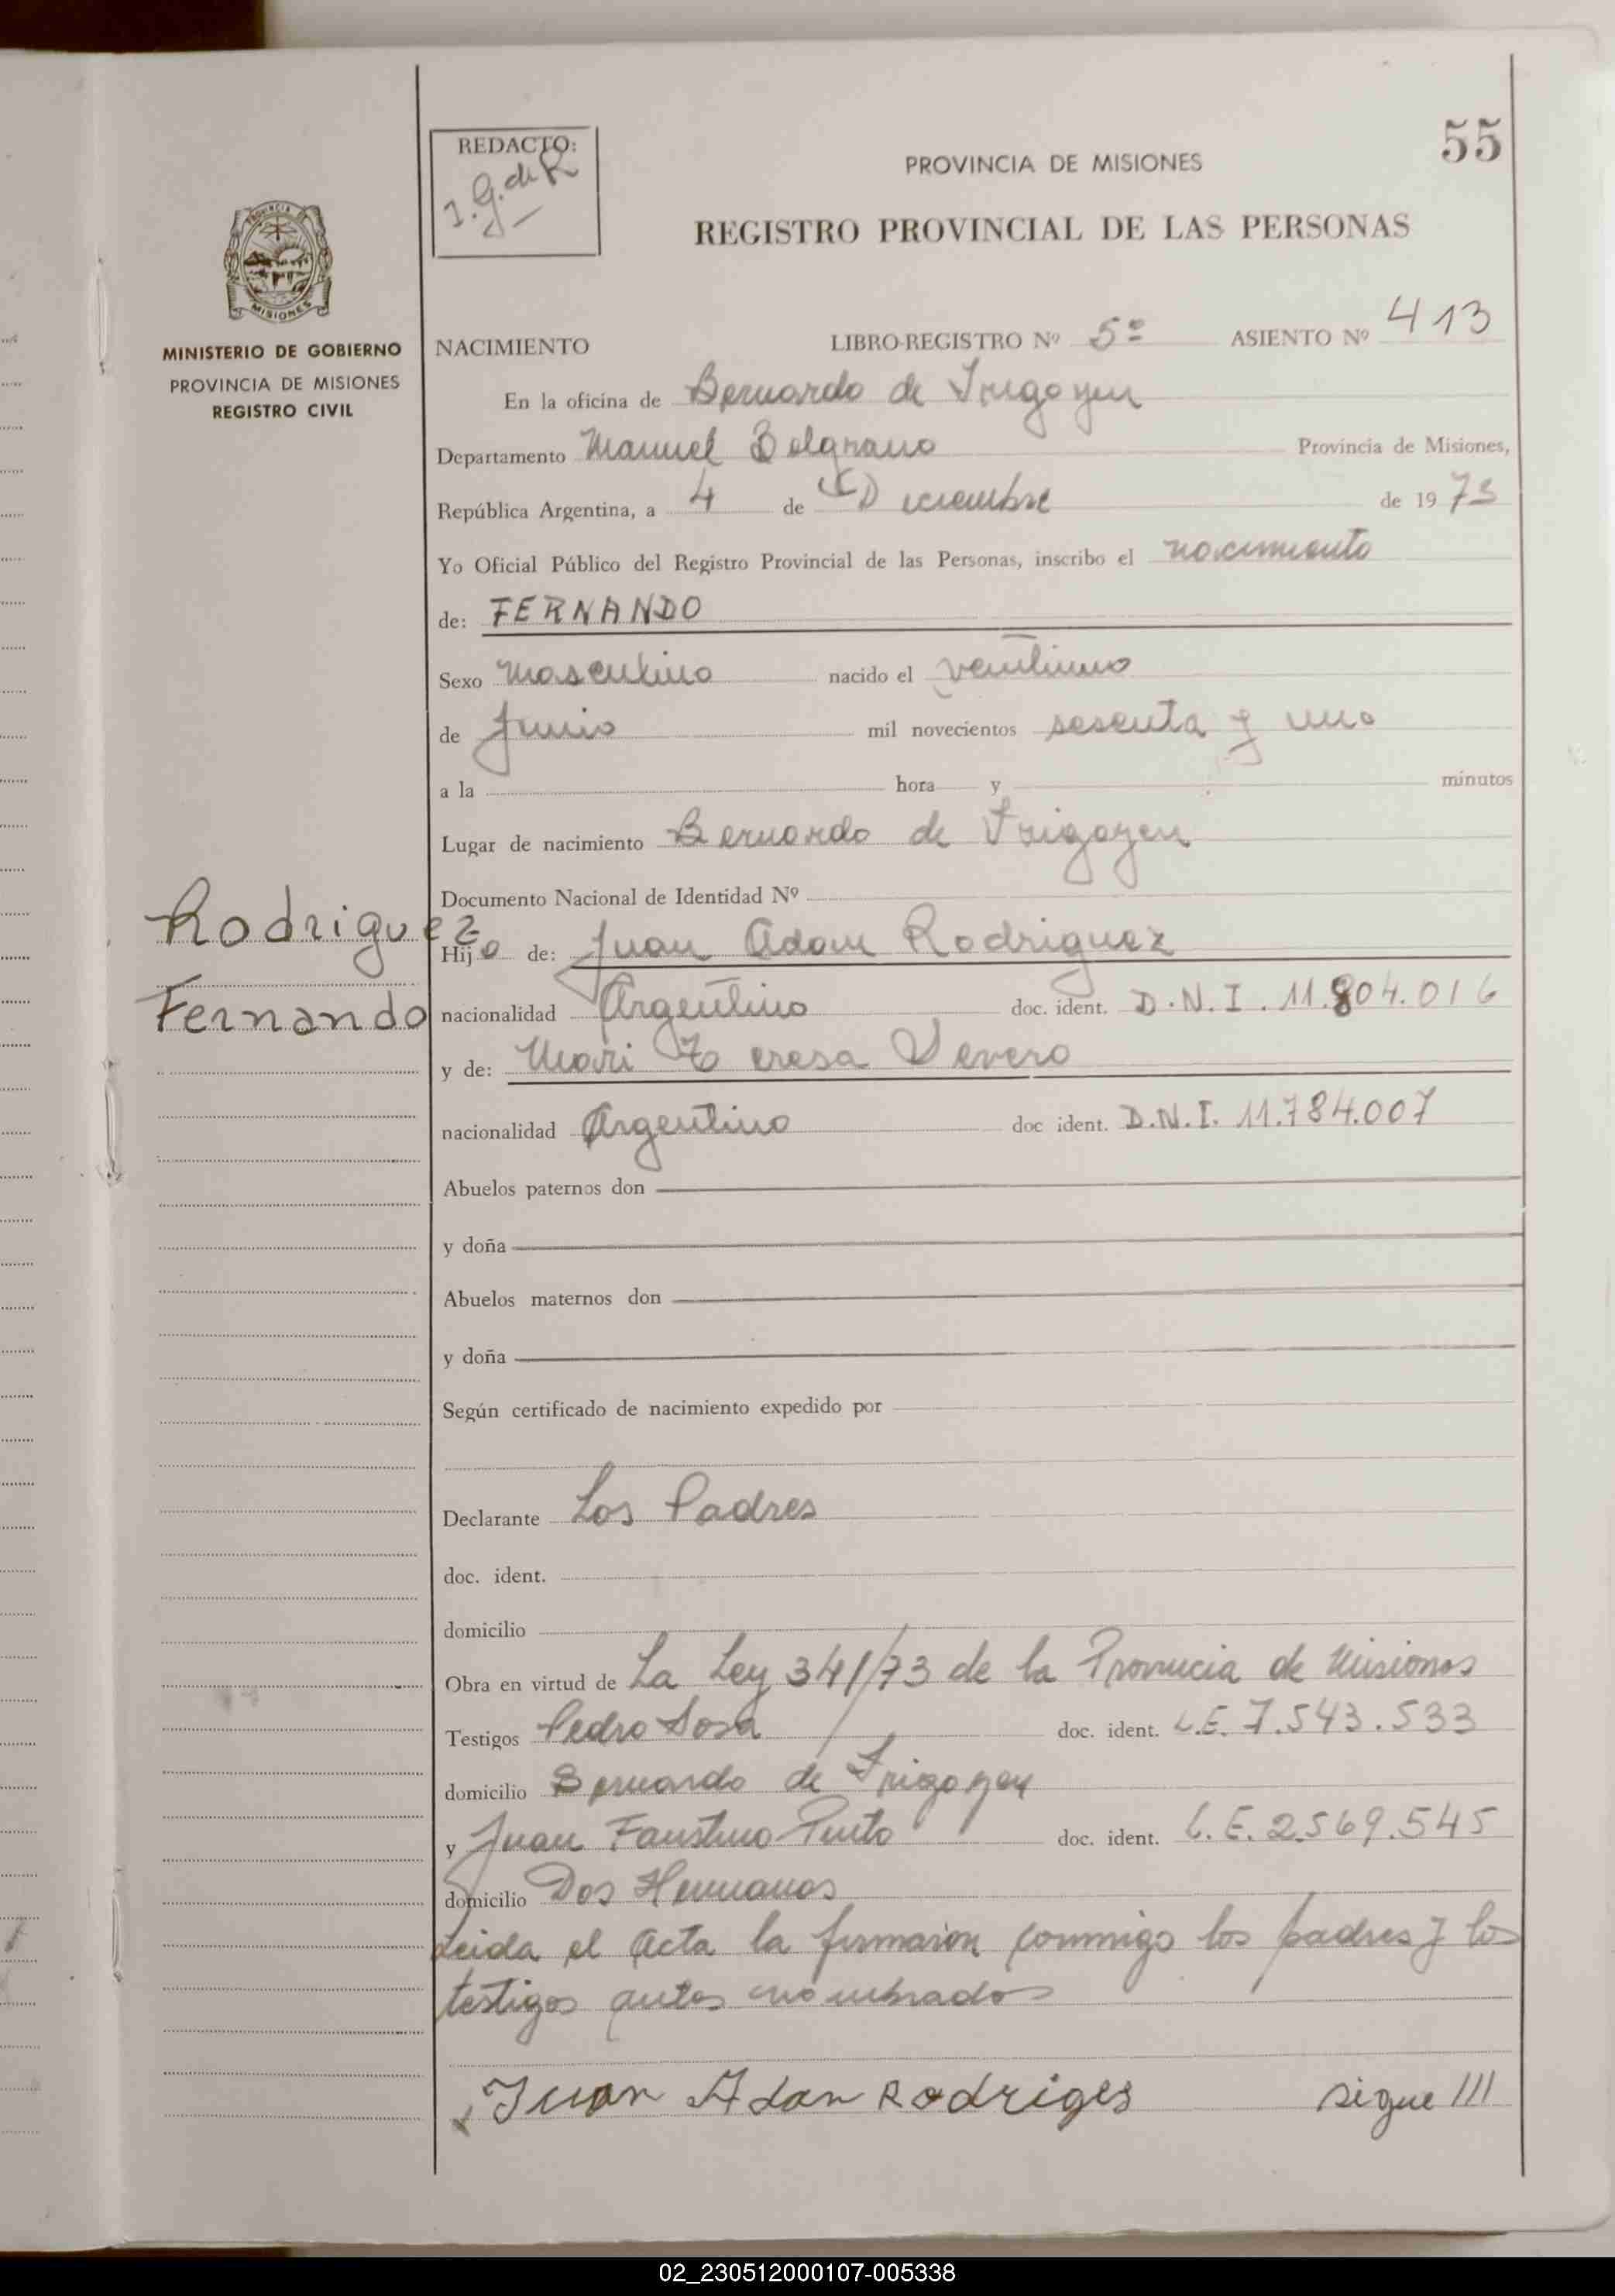 REDACTO:
J. G. de R
PROVINCIA DE MISIONES
55
REGISTRO PROVINCIAL DE LAS PERSONAS
MISIONES
MINISTERIO DE GOBIERNO
PROVINCIA DE MISIONES
REGISTRO CIVIL
NACIMIENTO LIBRO-REGISTRO Nº 5º ASIENTO Nº 413
En la oficina de Bernardo de Irigoyen
Departamento Manuel Belgrano Provincia de Misiones,
República Argentina, a 4 de Diciembre de 1973
Yo Oficial Público del Registro Provincial de las Personas, inscribo el nacimiento
de: FERNANDO
Sexo masculino nacido el veintiuno
de Junio mil novecientos sesenta y uno
a la hora y minutos
Lugar de nacimiento Bernardo de Irigoyen
Documento Nacional de Identidad Nº
Rodriguez
Hijo de: Juan Adam Rodriguez
Fernando
nacionalidad Argentino doc. ident. D.N.I. 11.804.016
y de: Mari Teresa Severo
nacionalidad Argentino doc ident. D.N.I. 11.784.007
Abuelos paternos don
y doña
Abuelos maternos don
y doña
Según certificado de nacimiento expedido por
Declarante Los Padres
doc. ident.
domicilio
Obra en virtud de La Ley 341/73 de la Provincia de Misiones
Testigos Pedro Sosa doc. ident. L.E. 7.543.533
domicilio Bernardo de Irigoyen
y Juan Faustino Pinto doc. ident. L.E. 2.569.545
domicilio Dos Hermanos
Leida el acta la firmaron conmigo los padres y los
testigos antes nombrados
Juan Adan Rodriges sigue ///
02_230512000107-005338